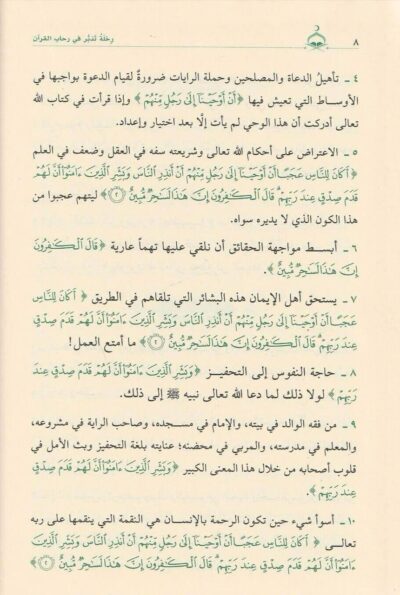 ٨
رحلة تدبُّر في رحاب القرآن
٤ ـ تأهيلُ الدعاة والمصلحين وحملة الرايات ضرورةٌ لقيام الدعوة بواجبها في
الأوساط التي تعيش فيها ﴿أَنْ أَوْحَيْنَآ إِلَىٰ رَجُلٍ مِّنْهُمْ﴾ وإذا قرأت في كتاب الله
تعالى أدركت أن هذا الوحي لم يأت إلَّا بعد اختيار وإعداد.
٥ ـ الاعتراض على أحكام الله تعالى وشريعته سفه في العقل وضعف في العلم
﴿أَكَانَ لِلنَّاسِ عَجَبًا أَنْ أَوْحَيْنَآ إِلَىٰ رَجُلٍ مِّنْهُمْ أَنْ أَنذِرِ ٱلنَّاسَ وَبَشِّرِ ٱلَّذِينَ ءَامَنُوٓا۟ أَنَّ لَهُمْ
قَدَمَ صِدْقٍ عِندَ رَبِّهِمْ ۗ قَالَ ٱلْكَـٰفِرُونَ إِنَّ هَـٰذَا لَسَـٰحِرٌ مُّبِينٌ ﴿٢﴾﴾ ليتهم عجبوا من
هذا الكون الذي لا يديره سواه.
٦ ـ أبسط مواجهة الحقائق أن نلقي عليها تهماً عارية ﴿قَالَ ٱلْكَـٰفِرُونَ
إِنَّ هَـٰذَا لَسَـٰحِرٌ مُّبِينٌ﴾.
٧ ـ يستحق أهل الإيمان هذه البشائر التي تلقاهم في الطريق ﴿أَكَانَ لِلنَّاسِ
عَجَبًا أَنْ أَوْحَيْنَآ إِلَىٰ رَجُلٍ مِّنْهُمْ أَنْ أَنذِرِ ٱلنَّاسَ وَبَشِّرِ ٱلَّذِينَ ءَامَنُوٓا۟ أَنَّ لَهُمْ قَدَمَ صِدْقٍ
عِندَ رَبِّهِمْ ۗ قَالَ ٱلْكَـٰفِرُونَ إِنَّ هَـٰذَا لَسَـٰحِرٌ مُّبِينٌ ﴿٢﴾﴾ ما أمتع العمل!
٨ ـ حاجة النفوس إلى التحفيز ﴿وَبَشِّرِ ٱلَّذِينَ ءَامَنُوٓا۟ أَنَّ لَهُمْ قَدَمَ صِدْقٍ عِندَ
رَبِّهِمْ﴾ لولا ذلك لما دعا الله تعالى نبيه ﷺ إلى ذلك.
٩ ـ من فقه الوالد في بيته، والإمام في مسجده، وصاحب الراية في مشروعه،
والمعلم في مدرسته، والمربي في محضنه؛ عنايته بلغة التحفيز وبث الأمل في
قلوب أصحابه من خلال هذا المعنى الكبير ﴿وَبَشِّرِ ٱلَّذِينَ ءَامَنُوٓا۟ أَنَّ لَهُمْ قَدَمَ صِدْقٍ
عِندَ رَبِّهِمْ﴾.
١٠ ـ أسوأ شيء حين تكون الرحمة بالإنسان هي النقمة التي ينقمها على ربه
تعالى ﴿أَكَانَ لِلنَّاسِ عَجَبًا أَنْ أَوْحَيْنَآ إِلَىٰ رَجُلٍ مِّنْهُمْ أَنْ أَنذِرِ ٱلنَّاسَ وَبَشِّرِ ٱلَّذِينَ
ءَامَنُوٓا۟ أَنَّ لَهُمْ قَدَمَ صِدْقٍ عِندَ رَبِّهِمْ ۗ قَالَ ٱلْكَـٰفِرُونَ إِنَّ هَـٰذَا لَسَـٰحِرٌ مُّبِينٌ ﴿٢﴾﴾